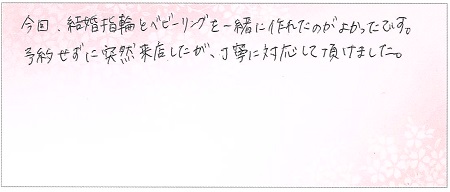 今回、結婚指輪とベビーリングを一緒に作れたのがよかったです。
予約せずに突然来店したが、丁寧に対応して頂けました。